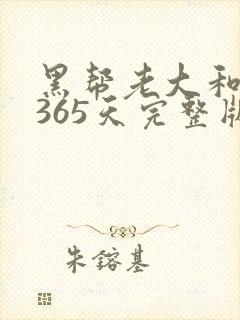 黑帮老大和
365天完整版
朱镕基